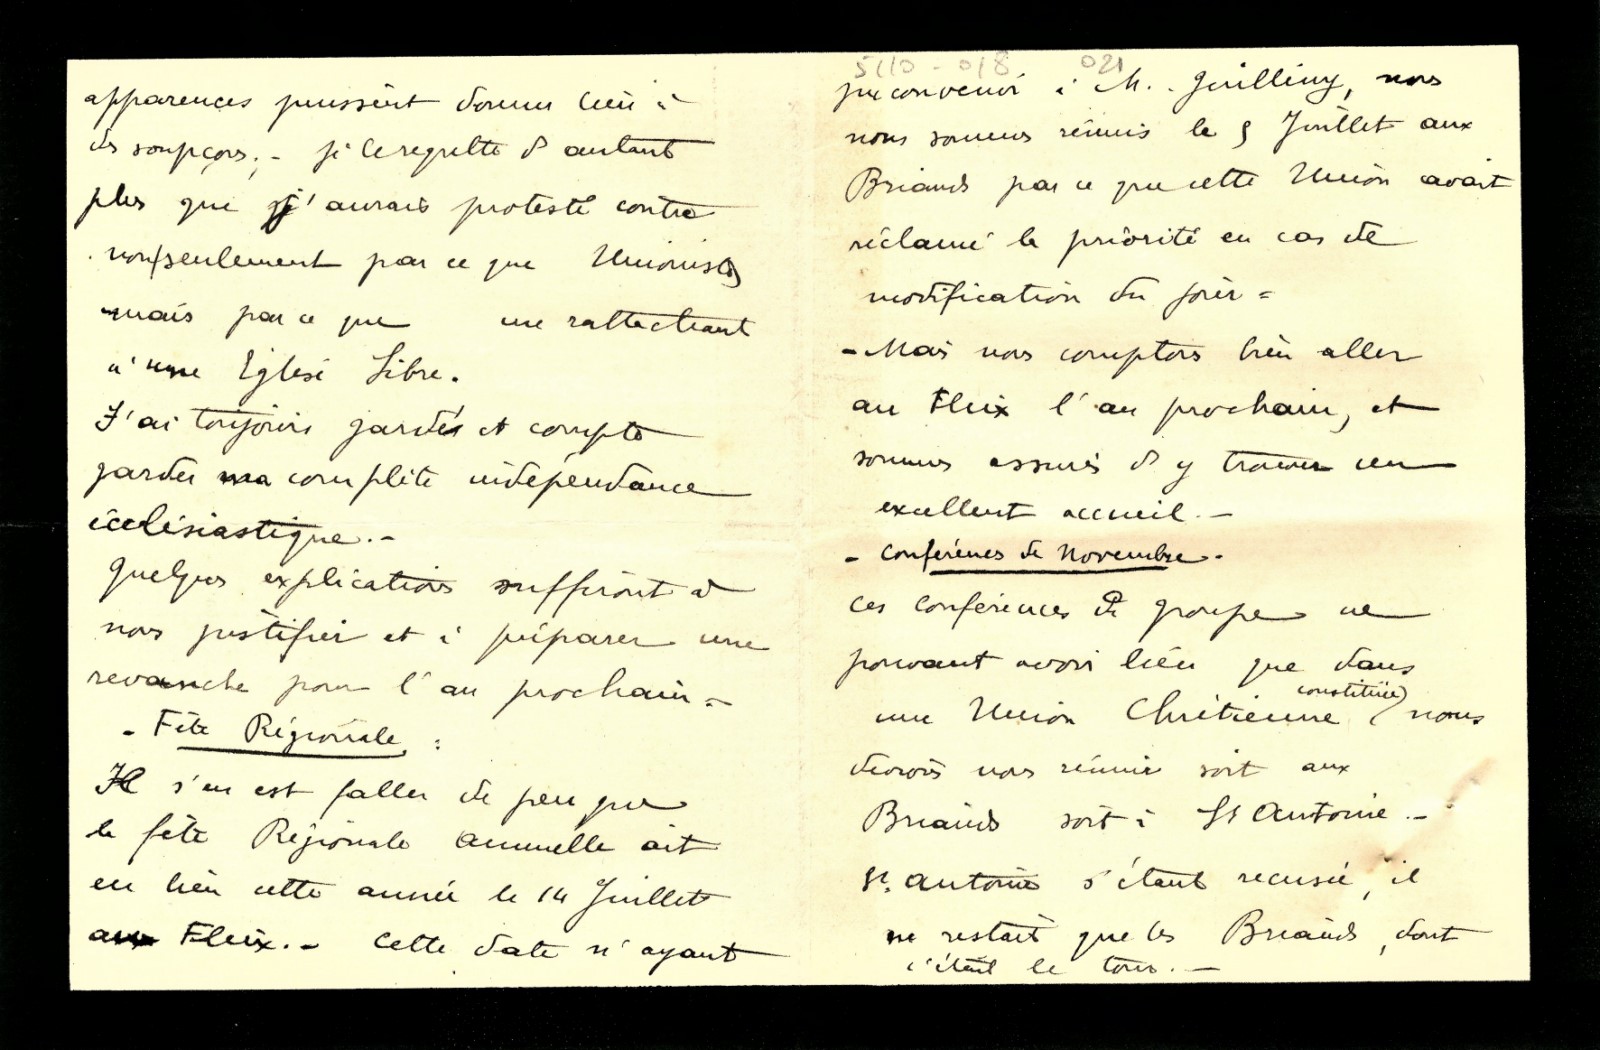 apparences puissent donner lieu à
des soupçons. - je le regrette d'autant
plus que j'aurais protesté contre
non seulement par ce que Unioniste
mais par ce que me rattachant
à une Eglise Libre.
J'ai toujours gardé et compte
garder ma complète indépendance
ecclésiastique. -
quelques explications suffiront à
nous justifier et à préparer une
revanche pour l'an prochain. -
- Fête Régionale :
Il s'en est faller de peu que
la fête Régionale annuelle ait
eu lieu cette année le 14 Juillet
au Fleix. - cette date n'ayant
5110 - 018 021
pu convenir à M. , nous
nous sommes réunis le 9 Juillet aux
Briands par ce que cette Union avait
réclamé la priorité en cas de
modification du jour =
- Mais nous comptons bien aller
au Fleix l'an prochain, et
sommes assurés d'y trouver un
excellent accueil. -
- conférences de Novembre -
ces conférences de groupe ne
pouvant avoir lieu que dans
une Union Chrétienne constituée nous
devons nous réunir soit aux
Briands soit à St Antoine. -
St. Antoine s'étant recusée, il
ne restait que les Briands, dont
c'était le tour. -